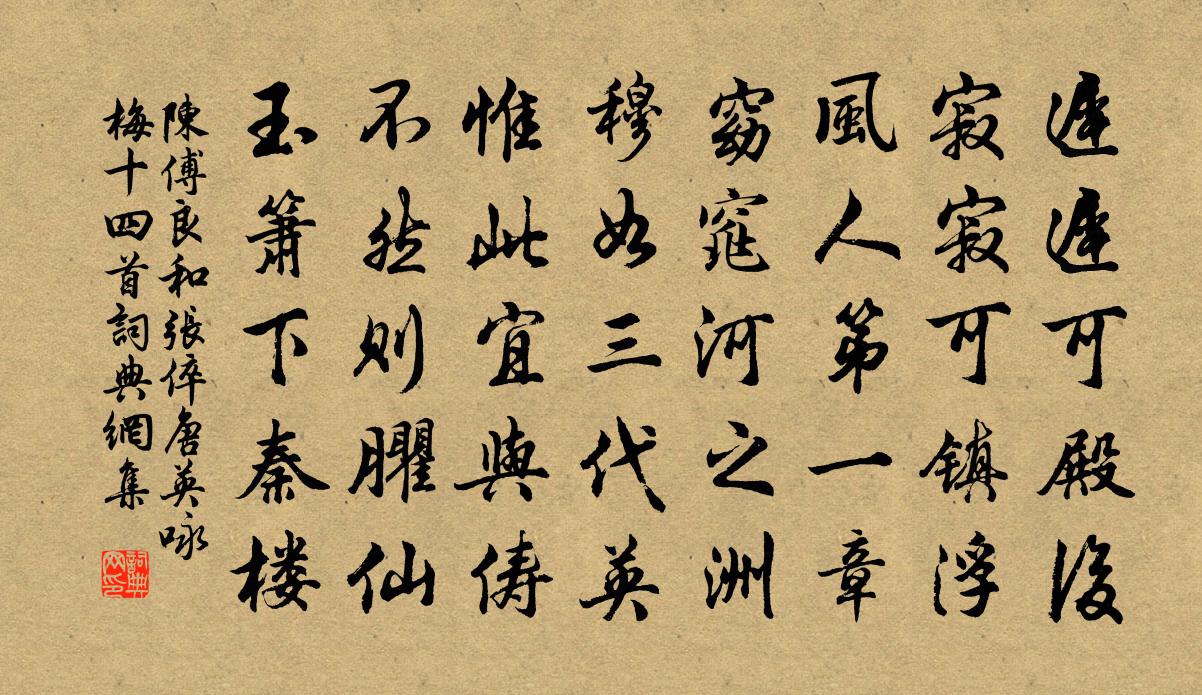 遲遲可殿後
寂寂可镇浮
風人第一章
窈窕河之洲
穆如三代英
惟此宜與俦
不然則臞仙
玉箫下秦楼
陳傅良和張倅唐英咏
梅十四首詞典網集
詞典网印